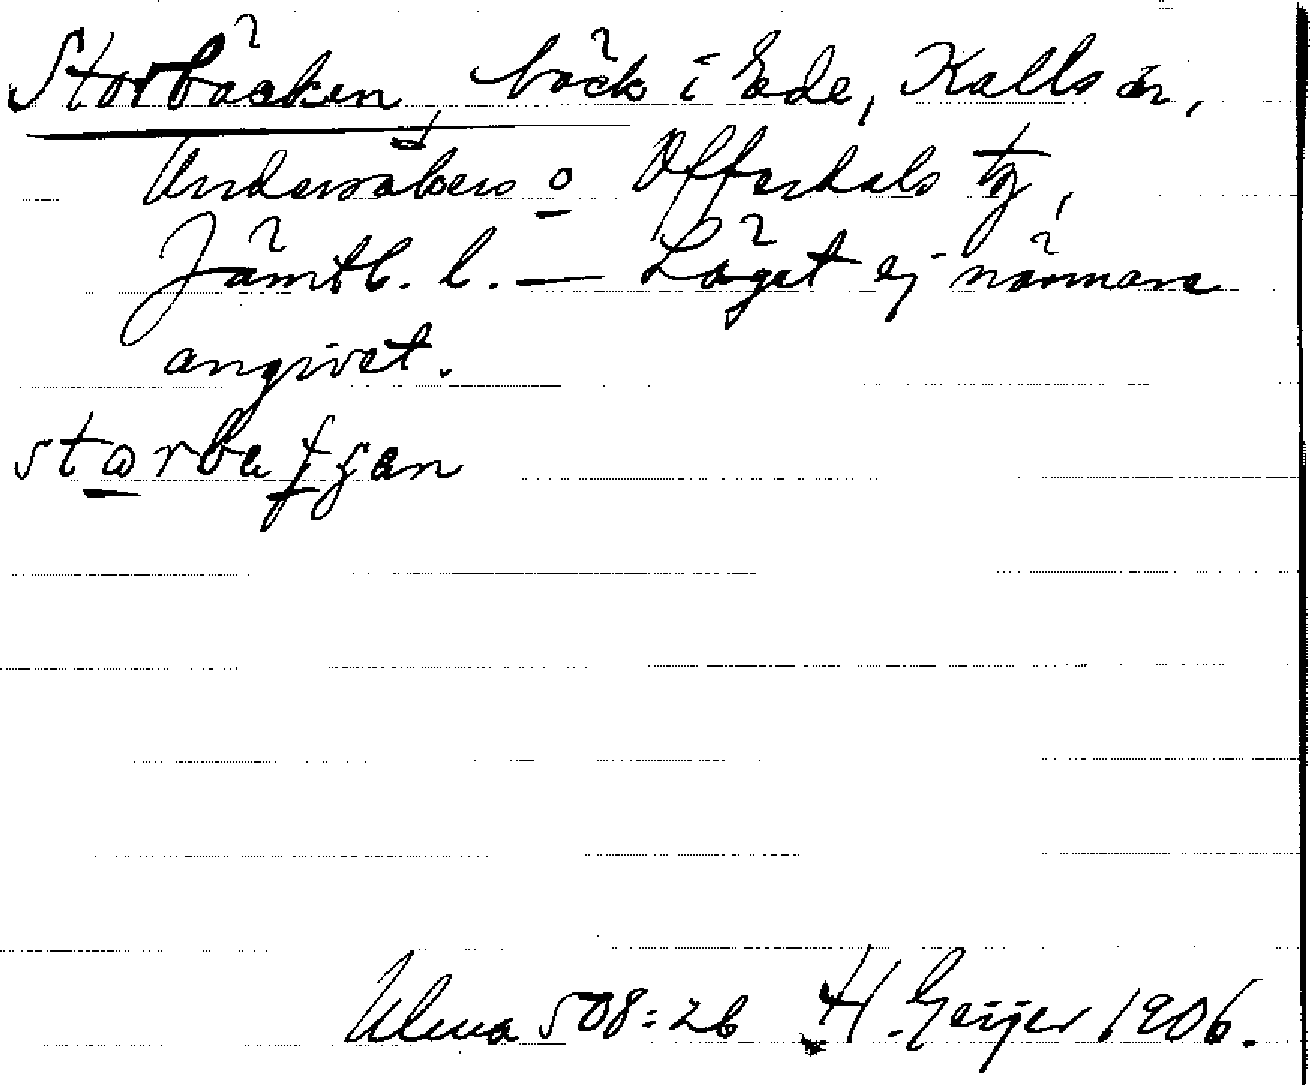 Storbäcken, bäck i Ede, Kalls sn,
Undersåkers o Offerdals tg,
Jämtl. l. — Läget ej närmare
angivet.
Ulma 508:26 H. Geijer 1906.